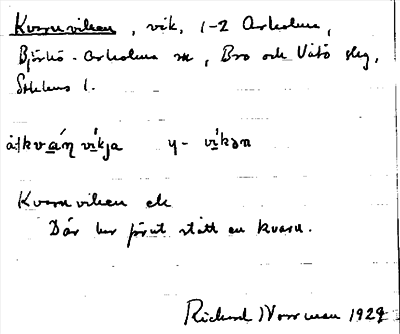 Kvarnviken, vik, 1-2 Arholma,
Björkö-Arholma sn, Bro och Vätö slg,
Sthlms l.
å kvá̱ŋ vi̱kja y- vi̱kən
Kvarnviken ek
Där har förut stått en kvarn.
Rickard Norrman 1929